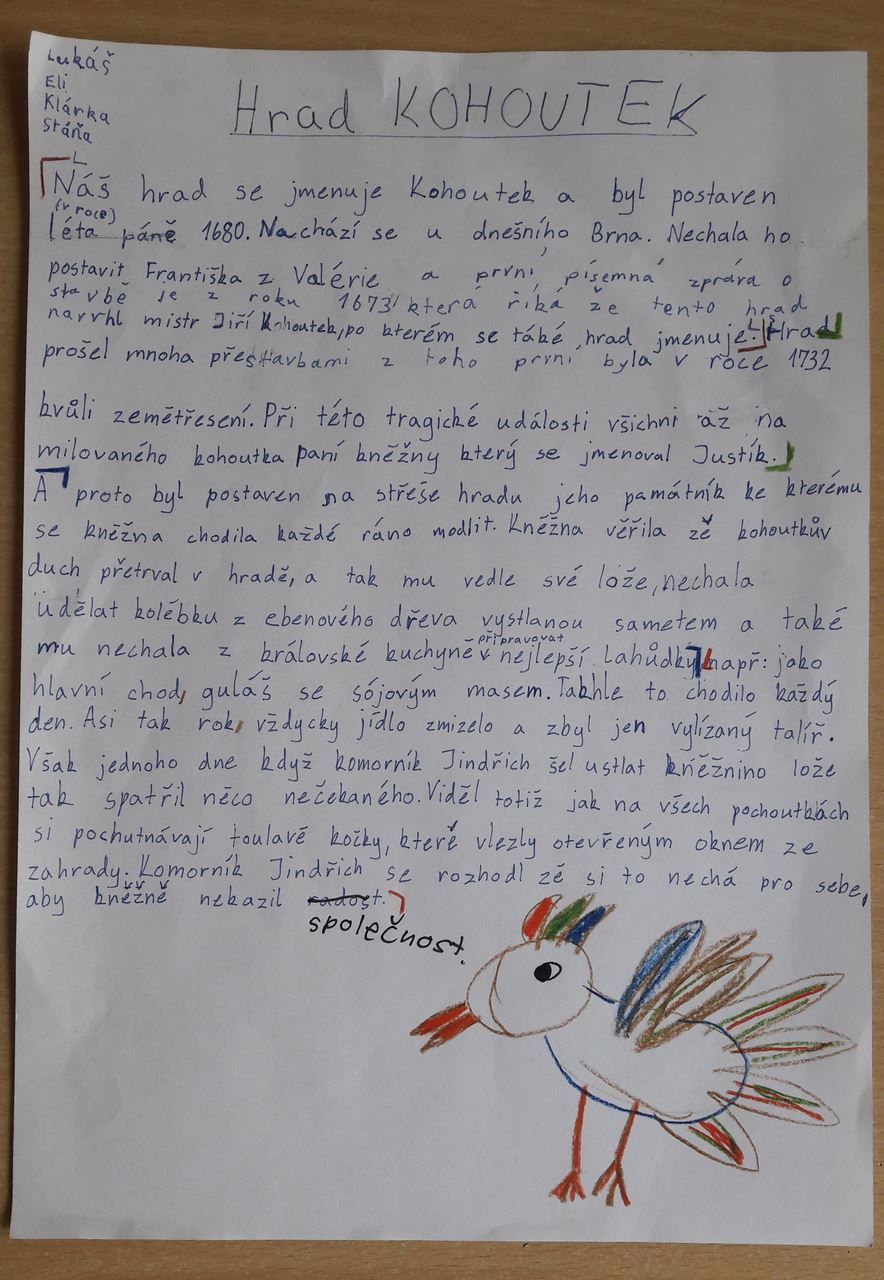 Lukáš
Eli
Klárka
Stáňa
Hrad KOHOUTEK
L
Náš hrad se jmenuje Kohoutek a byl postaven
(v roce)
léta páně 1680. Nachází se u dnešního Brna. Nechala ho
postavit Františka z Valérie a první písemná zpráva o
stavbě je z roku 1673 která říká že tento hrad
navrhl mistr Jiří Kohoutek, po kterém se také hrad jmenuje. Hrad
prošel mnoha přestavbami z toho první byla v roce 1732
kvůli zemětřesení. Při této tragické události všichni až na
milovaného kohoutka paní kněžny který se jmenoval Justík.
A proto byl postaven na střeše hradu jeho památník ke kterému
se kněžna chodila každé ráno modlit. Kněžna věřila zě kohoutkův
duch přetrval v hradě, a tak mu vedle své lože, nechala
udělat kolébku z ebenového dřeva vystlanou sametem a také
připravovat
mu nechala z královské kuchyně v nejlepší Lahůdky např: jako
hlavní chod, guláš se sójovým masem. Takhle to chodilo každý
den. Asi tak rok, vždycky jídlo zmizelo a zbyl jen vylízaný talíř.
Však jednoho dne když komorník Jindřich šel ustlat kněžnino lože
tak spatřil něco nečekaného. Viděl totiž jak na všech pochoutkách
si pochutnávají toulavé kočky, které vlezly otevřeným oknem ze
zahrady. Komorník Jindřich se rozhodl zě si to nechá pro sebe,
aby kněžně nekazil radost.
společnost.